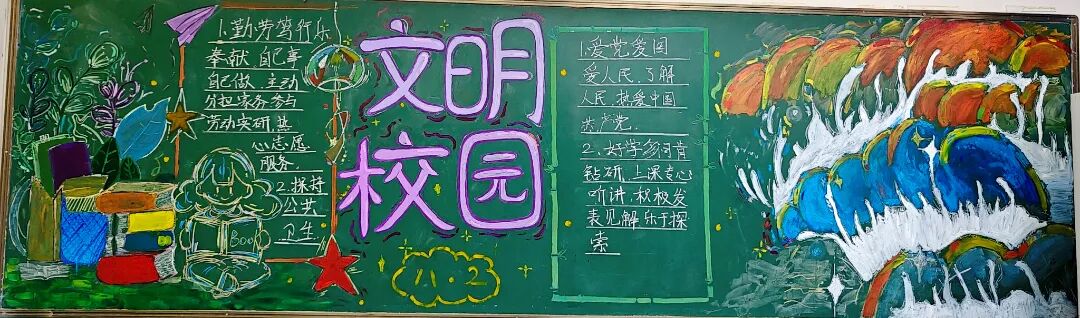 1.勤劳笃行乐
奉献.自己事
自己做.主动
分担家务参与
劳动实研.热
心志愿
服务.
2.保持
公共
卫生.
Boo
文明
校园
八.2
1.爱党爱国
爱人民.了解
人民.热爱中国
共产党.
2.好学多问肯
钻研.上课专心
听讲.积极发
表见解乐于探
索